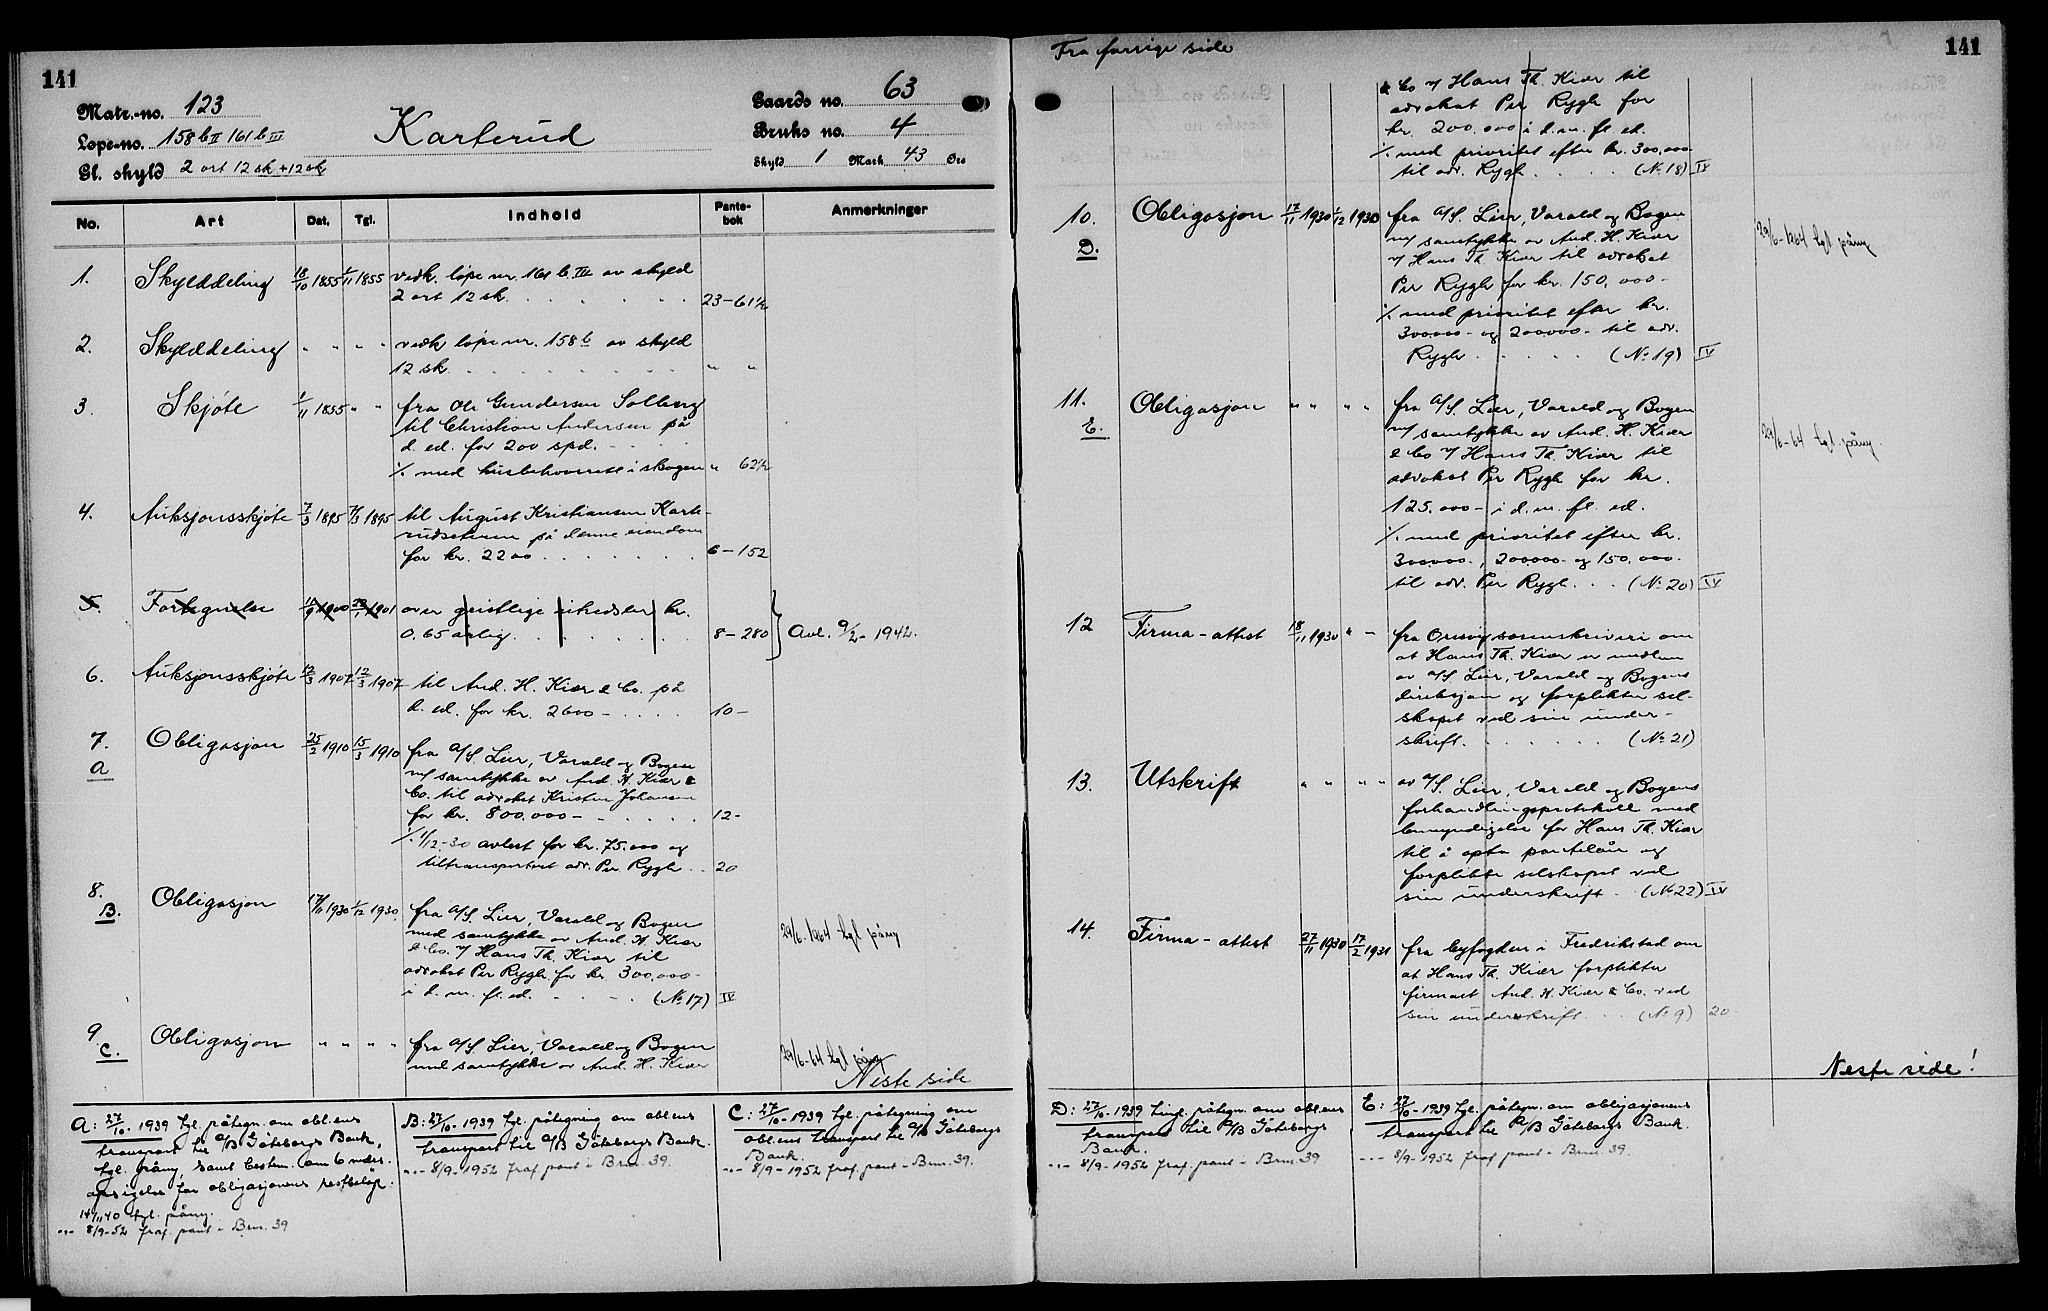 141
Matr.-no. 123
Lope-no. 158 b II 161 b III
Gl. skyld 2 ort 12 sk + 12 sk
Karterud
Gaards no. 63
Bruks no. 4
Skyld 1 Mark 43 Øre
No. Art Dat. Tgl. Indhold Pante-bok Anmerkninger
1. Skylddeling 18/10 1855 1/11 1855 vedk. løpe nr. 161 b. III av skyld
2 ort 12 sk. 23-61½
2. Skylddeling " " " " vedk løpe nr. 158 b av skyld
12 sk. " "
3. Skjøte 1/11 1855 " " fra Ole Gundersen Solberg
til Christian Andersen på
d. ed. for 200 spd. -
%. med husbehovsrett i skogen " 62½
4. Auksjonsskjøte 7/3 1895 7/3 1895 til August Kristiansen Karte-
rudseteren på denne eiendom
for kr. 2200 6-152
5. Fortegnelse 1900 1901 over geistlige
0.65 årlig. 8-280 } Avl. 9/2 - 1942.
6. Auksjonsskjøte 12/3 1907 12/3 1907 til And. H. Kiær & Co. på
d. ed. for kr. 2600 - 10-
7. Obligasjon 25/2 1910 15/3 1910 fra A/S. Lier, Varald og Bogen
A m/ samtykke av And. H. Kiær &
Co. til advokat Kristen Johansen
for kr. 800,000 - 12-
%. 1/12-30 avlest for kr. 75.000 og
tiltransportert adv. Per Rygh .. 20
8. Obligasjon 17/11 1930 1/12 1930 fra A/S. Lier, Varald og Bogen
B. med samtykke av And. H. Kiær
& Co. v/ Hans Th. Kiær til
advokat Per Rygh for kr. 300,000 -
i d. m. fl. ed. (No 17) IV
29/6-1964 tgl. påny
9. Obligasjon " " " " fra A/S. Lier, Varald og Bogen
C. med samtykke av And. H. Kiær
29/6-64 tgl. påny
Neste side
A: 27/10-1939 tgl. påtegn. om obl.ens
transport til A/B Göteborgs Bank,
tgl. påny, samt bestem. om 6 mdrs.
opsigelse for obligasjonens restbeløp.
14/11 40 tgl. påny.
-"- 8/9-52 fraf. pant i Brn. 39
B: 27/10-1939 tgl. påtegning om obl.ens
transport til A/B Göteborgs Bank.
-"- 8/9-1952 fraf. pant i Brn. 39.
C: 27/10-1939 tgl. påtegning om
obl.ens transport til A/B Göteborgs
Bank.
-"- 8/9-1952 fraf. pant - Brn. 39.
Fra forrige side
141
& Co v/ Hans Th. Kiær til
advokat Per Rygh for
kr. 200.000 i d. m. fl. ed.
%. med prioritet efter kr. 300,000 -
til adv. Rygh . . . . (No 18) IV
10. Obligasjon 17/11 1930 1/12 1930 fra A/S. Lier, Varald og Bogen
D. m/ samtykke av And. H. Kiær
v/ Hans Th Kiær til advokat
Per Rygh for kr. 150.000 -
%. med prioritet efter kr.
300000 - og 200000 - til adv.
Rygh . . . . . (No 19) IV
29/6-1964 tgl. påny
11. Obligasjon " " " " fra A/S. Lier, Varald og Bogen
E. m/ samtykke av And. H. Kiær
& Co v/ Hans Th. Kiær til
advokat Per Rygh for kr.
125.000 - i d. m. fl. ed.
%. med prioritet efter kr.
300000 -, 200000 - og 150.000 -
til adv. Per Rygh . . . (No 20) IV
29/6-64 tgl. påny.
12 Firma-attest 18/11 1930 " - fra Orsog sorenskriveri om
at Hans Th. Kiær er medlem
av A/S Lier, Varald og Bogens
direksjon og forplikter sel-
skapet ved sin under-
skrift. (No 21)
13. Utskrift " " " " av A/S. Lier, Varald og Bogens
forhandlingsprotokoll med
bemyndigelse for Hans Th. Kiær
til å opta pantelån og
forplikte selskapet ved
sin underskrift. (No 22) IV
14. Firma-attest 27/11 1930 17/2 1931 fra byfogden i Fredrikstad om
at Hans Th. Kiær forplikter
firmaet And. H. Kiær & Co. ved
sin underskrift. .. (No 9) 20-
Neste side!
D: 27/10-1939 tingl. påtegn. om obl.ens
transport til A/B Göteborgs
Bank.
-"- 8/9-1952 fraf. pant i Brn. 39
E: 27/10-1939 tgl. påtegn. om obligasjonens
transport til A/B Göteborgs Bank.
-"- 8/9-1952 fraf. pant - Brn. 39.